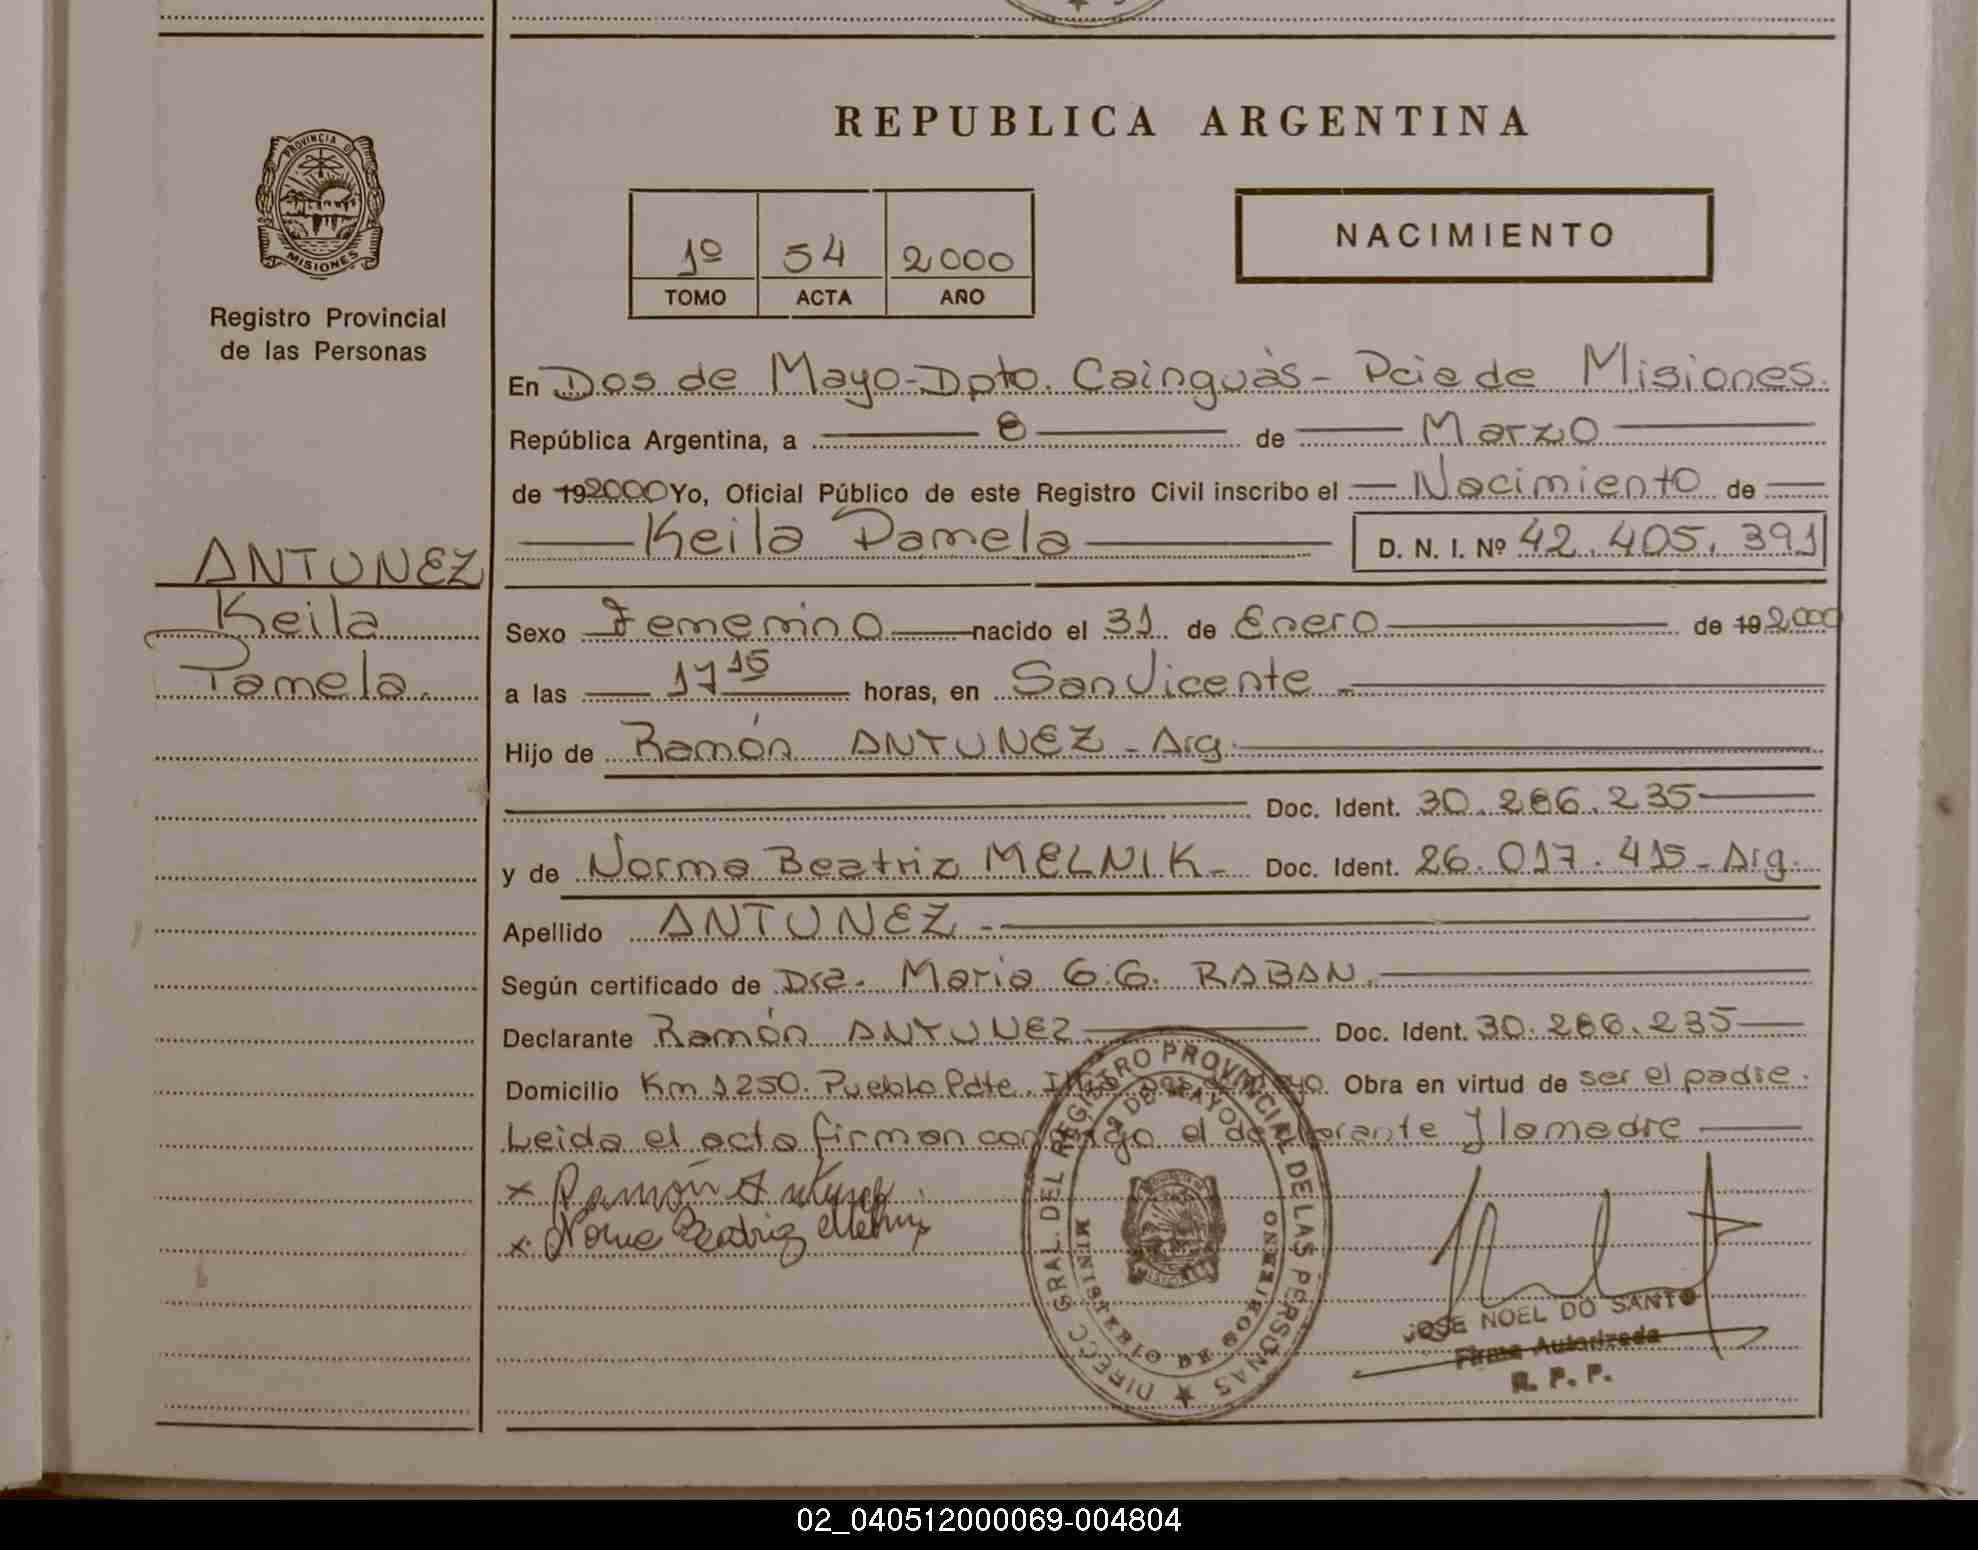 REPUBLICA ARGENTINA
PROVINCIA DE
MISIONES
Registro Provincial
de las Personas
1º 54 2000
TOMO ACTA AÑO
NACIMIENTO
En Dos de Mayo-Dpto. Cainguàs- Pcia de Misiones.
República Argentina, a 8 de Marzo
de 192000 Yo, Oficial Público de este Registro Civil inscribo el Nacimiento de
Keila Pamela D. N. I. Nº 42.405.391
ANTUNEZ
Keila
Pamela.
Sexo Femenino nacido el 31 de Enero de 192000
a las 17 15 horas, en San Vicente
Hijo de Ramón ANTUNEZ - Arg.
Doc. Ident. 30.286.235
y de Norma Beatriz MELNIK- Doc. Ident. 26.017.415-Arg.
Apellido ANTUNEZ-
Según certificado de Dra. Maria G.G. RABAN.
Declarante Ramón ANTUNEZ Doc. Ident. 30.286.235
Domicilio Km 1250. Pueblo Pdte. Obra en virtud de ser el padre.
Leida el acta firman conmigo el declarante y la madre
x Ramón Antunez
x Norma Beatriz Melnik
DIRECC. GRAL. DEL REGISTRO PROVINCIAL DE LAS PERSONAS
2 DE MAYO
MINISTERIO DE GOBIERNO
MISIONES
JOSE NOEL DO SANTO
Firma Autorizada
R. P. P.
02_040512000069-004804